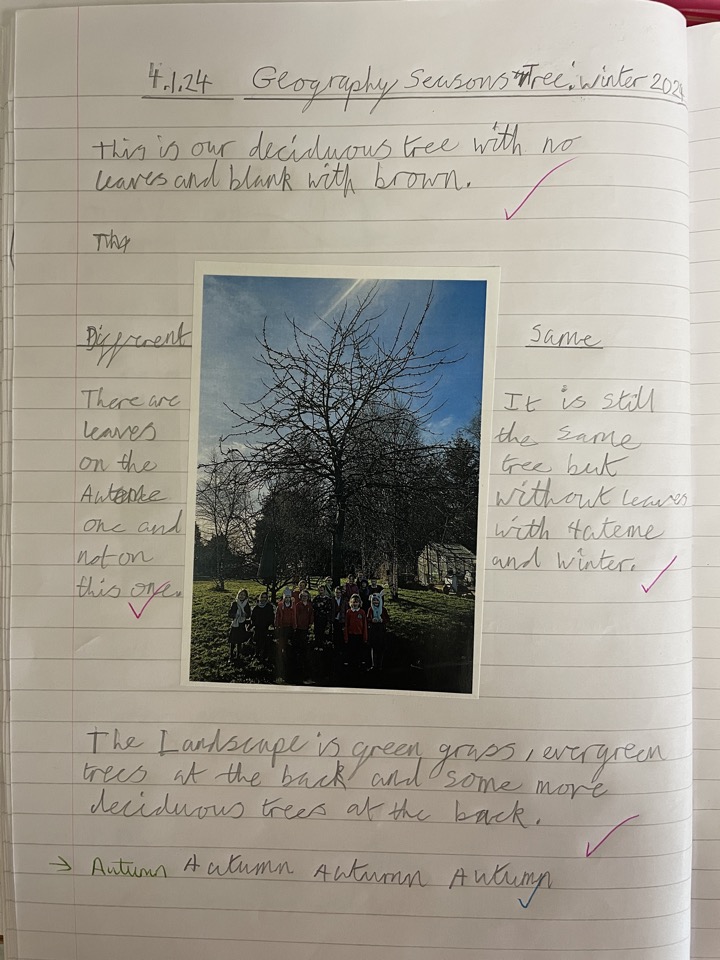 4.1.24 Geography Seasons Tree: winter 2024
This is our deciduous tree with no
leaves and blank with brown.
Tha
Different
There are
leaves
on the
Auteme
one and
not on
this one.
Same
It is still
the same
tree but
without leaves
with 4ateme
and winter.
The Landscape is green grass, evergreen
trees at the back and some more
deciduous trees at the back.
→ Autumn Autumn Autumn Autumn